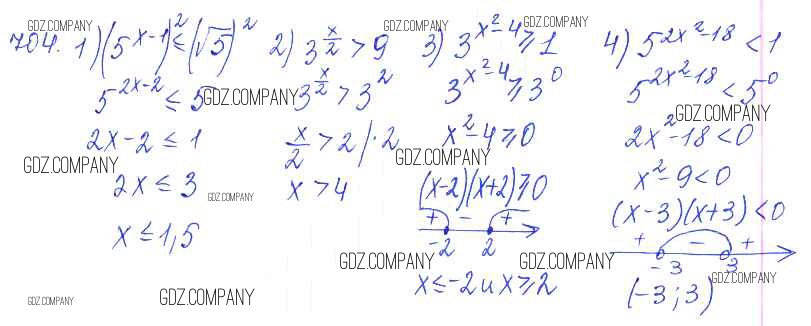 704. 1) (5^{x-1})^2 ≤ (√5)^2
5^{2x-2} ≤ 5
2x-2 ≤ 1
2x ≤ 3
x ≤ 1,5
2) 3^{x/2} > 9
3^{x/2} > 3^2
x/2 > 2 | · 2
x > 4
3) 3^{x^2-4} ≥ 1
3^{x^2-4} ≥ 3^0
x^2-4 ≥ 0
(x-2)(x+2) ≥ 0
+ - +
-2 2
x ≤ -2 и x ≥ 2
4) 5^{2x^2-18} < 1
5^{2x^2-18} < 5^0
2x^2-18 < 0
x^2-9 < 0
(x-3)(x+3) < 0
+ - +
-3 3
(-3; 3)
GDZ.COMPANY
GDZ.COMPANY
GDZ.COMPANY
GDZ.COMPANY
GDZ.COMPANY
GDZ.COMPANY
GDZ.COMPANY
GDZ.COMPANY
GDZ.COMPANY
GDZ.COMPANY
GDZ.COMPANY
GDZ.COMPANY
GDZ.COMPANY